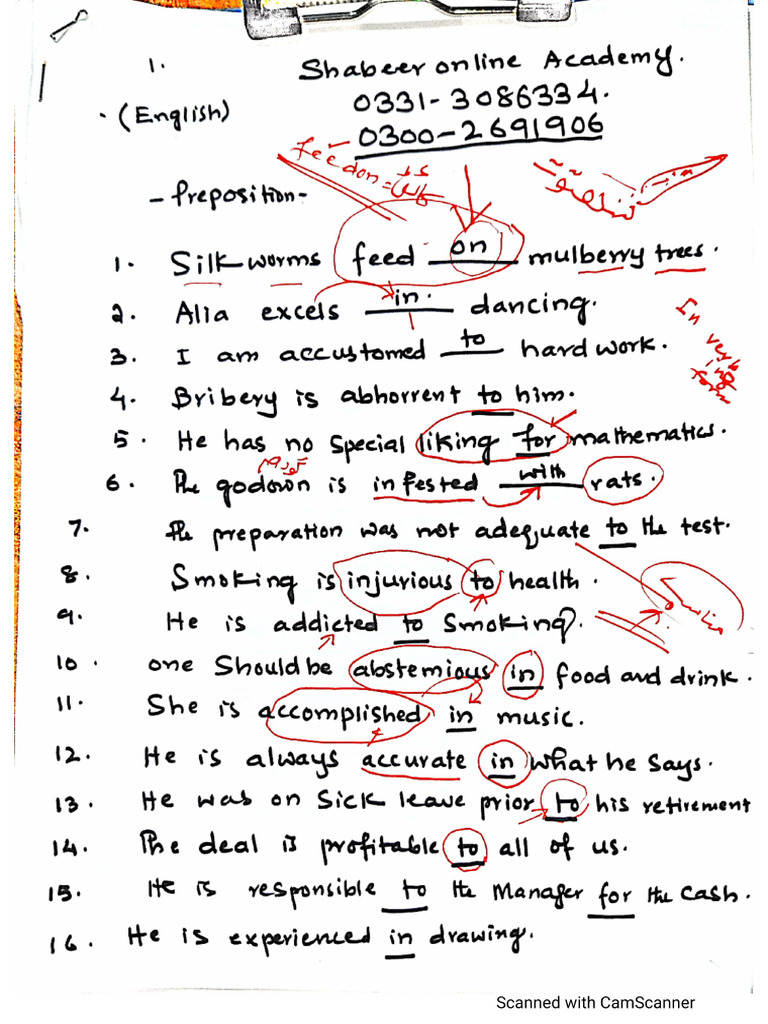 1.
Shabeer online Academy.
(English)
0331-3086334.
0300-2691906
Feedon=
-Preposition-
1. Silkworms feed on mulberry trees.
2. Alia excels in dancing.
3. I am accustomed to hard work.
4. Bribery is abhorrent to him.
5. He has no special liking for mathematics.
6. The godown is infested with rats.
7. The preparation was not adequate to the test.
8. Smoking is injurious to health.
9. He is addicted to smoking.
10. one should be abstemious in food and drink.
11. She is accomplished in music.
12. He is always accurate in what he says.
13. He was on sick leave prior to his retirement
14. The deal is profitable to all of us.
15. He is responsible to the Manager for the cash.
16. He is experienced in drawing.
Scanned with CamScanner